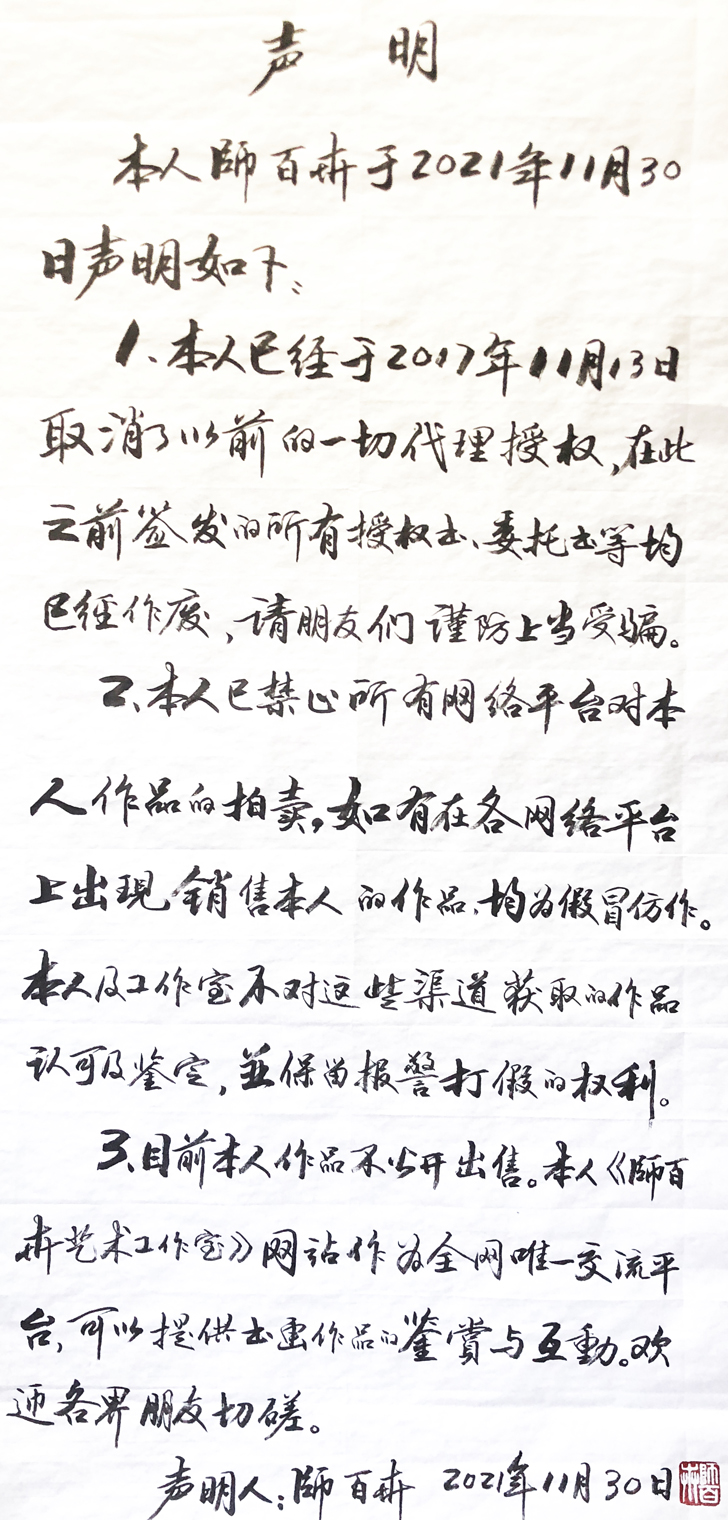 声 明
本人師百卉于2021年11月30
日声明如下:
1、本人已经于2017年11月13日
取消了以前的一切代理授权,在此
之前签发的所有授权书、委托书等均
已经作废,请朋友们谨防上当受骗。
2、本人已禁止所有网络平台对本
人作品的拍卖,如有在各网络平台
上出現销售本人的作品、均为假冒仿作。
本人及工作室不对这些渠道获取的作品
认可及鉴定,並保留报警打假的权利。
3、目前本人作品不公开出售。本人《師百
卉艺术工作室》网站作为全网唯一交流平
台,可以提供书画作品的鉴賞与互動。欢
迎各界朋友切磋。
声明人:師百卉 2021年11月30日